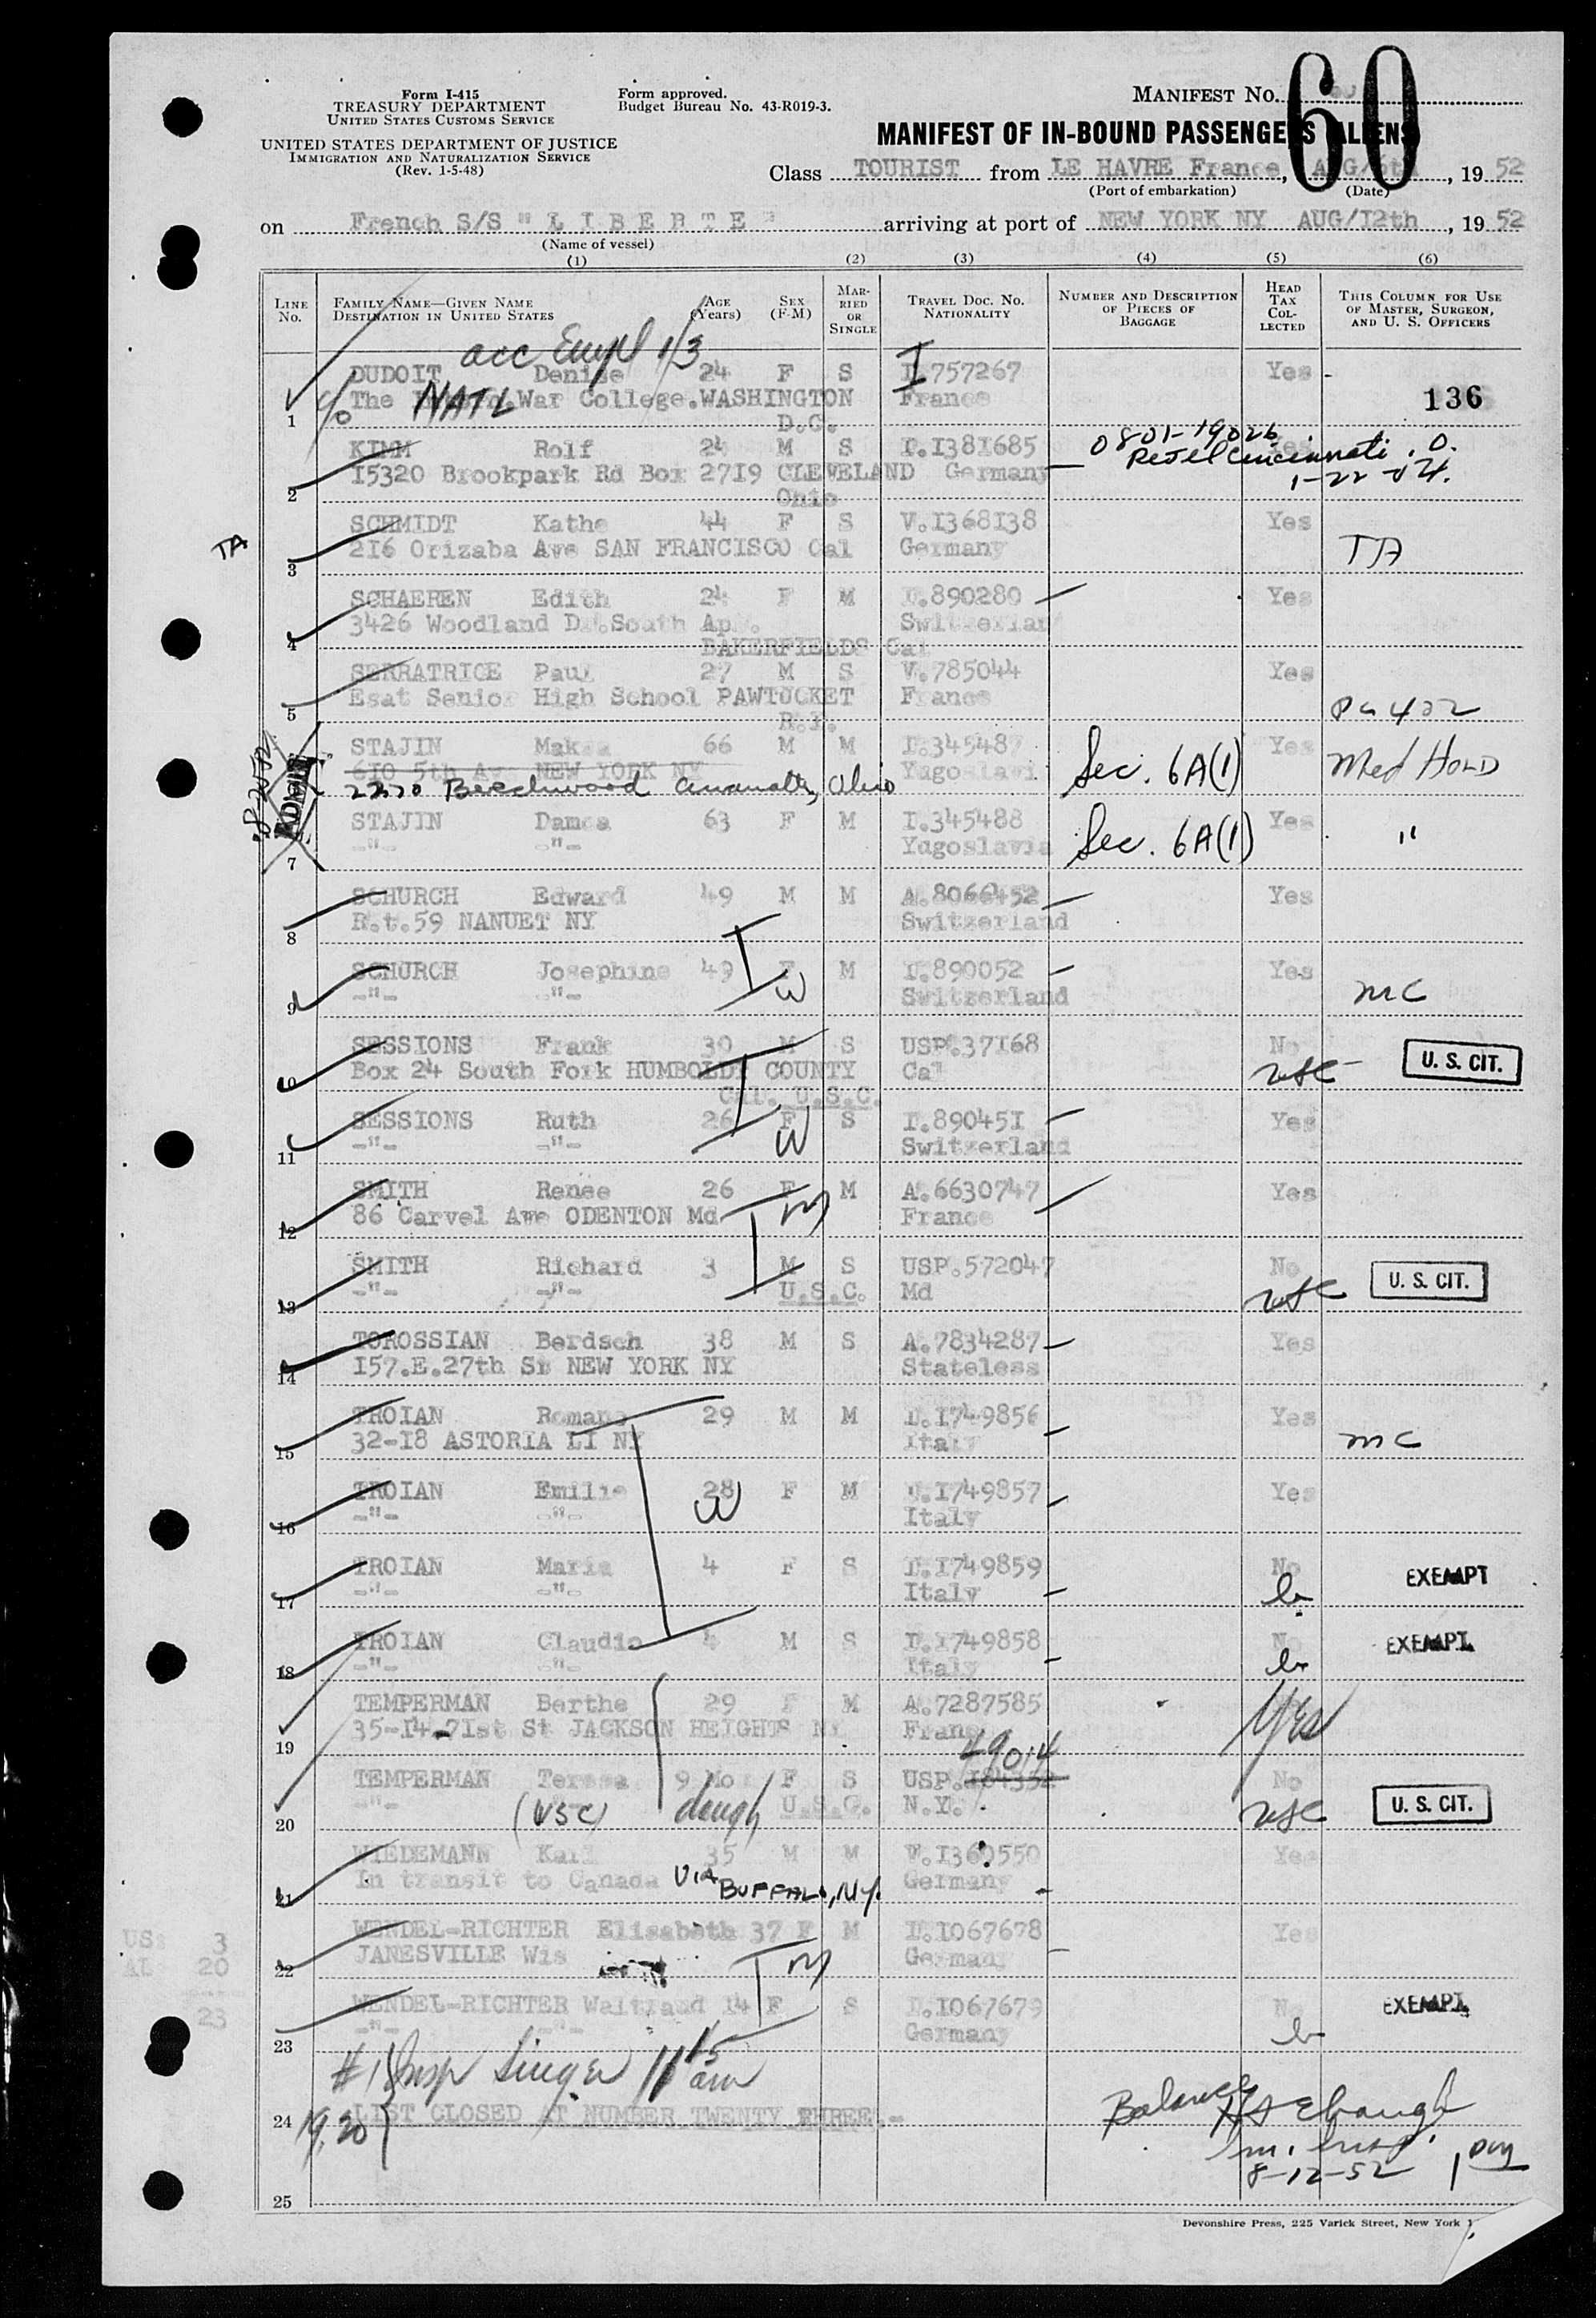 Form I-415
TREASURY DEPARTMENT
UNITED STATES CUSTOMS SERVICE
UNITED STATES DEPARTMENT OF JUSTICE
IMMIGRATION AND NATURALIZATION SERVICE
(Rev. 1-5-48)
Form approved.
Budget Bureau No. 43-R019-3.
MANIFEST No.
60
MANIFEST OF IN-BOUND PASSENGERS (ALIENS)
Class TOURIST from LE HAVRE France, AUG/6th, 19 52
(Port of embarkation) (Date)
on French S/S "LIBERTE" arriving at port of NEW YORK NY AUG/12th, 19 52
(Name of vessel)
(1) (2) (3) (4) (5) (6)
LINE No. FAMILY NAME—GIVEN NAME DESTINATION IN UNITED STATES AGE (Years) SEX (F-M) MARRIED OR SINGLE TRAVEL DOC. No. NATIONALITY NUMBER AND DESCRIPTION OF PIECES OF BAGGAGE HEAD TAX COLLECTED THIS COLUMN FOR USE OF MASTER, SURGEON, AND U. S. OFFICERS
acc Empl 1/3
DUDOIT Denise 24 F S I.757267 Yes
1 c/o The NATL War College.WASHINGTON France 136
D.C.
KIMM Rolf 24 M S I.1381685 0801-19026 Yes
2 15320 Brookpark Rd Box 2719 CLEVELAND Germany Cincinnati. O.
Ohio 1-22-54.
SCHMIDT Kathe 44 F S V.1368138 Yes
TA 3 216 Orizaba Ave SAN FRANCISCO Cal Germany TA
SCHAEREN Edith 24 F M I.890280 Yes
4 3426 Woodland Dr.South Ap.
BAKERFIELDS Cal
SERRATRICE Paul 27 M S V.785044 Yes
5 Esat Senior High School PAWTUCKET France
R.I.
STAJIN Maksa 66 M M I.345487 Sec. 6A(1) Yes Med HOLD
610 5th Av NEW YORK NY Yugoslavi
2270 Beechwood Cincinnati, Ohio
STAJIN Damca 63 F M I.345488 Sec. 6A(1) Yes "
7 -"- -"- Yugoslavia
SCHURCH Edward 49 M M A.8066452 Yes
8 R.t.59 NANUET NY Switzerland
SCHURCH Josephine 49 F M I.890052 Yes
9 -"- -"- W Switzerland MC
SESSIONS Frank 30 M S USP.37168 No
10 Box 24 South Fork HUMBOLDT COUNTY Cal USC U. S. CIT.
Cal. U.S.C.
SESSIONS Ruth 26 F S I.890451 Yes
11 -"- -"- W Switzerland
SMITH Renee 26 F M A.6630747 Yes
12 86 Carvel Awe ODENTON Md M France
SMITH Richard 3 M S USP.572047 No
13 -"- -"- U.S.C. Md USC U. S. CIT.
TOROSSIAN Berdsch 38 M S A.7834287 Yes
14 157.E.27th St NEW YORK NY Stateless
TROIAN Romano 29 M M I.1749856 Yes
15 32-18 ASTORIA LI NY Italy MC
TROIAN Emilie 28 F M I.1749857 Yes
16 -"- -"- W Italy
TROIAN Maria 4 F S I.1749859 No EXEMPT
17 -"- -"- Italy
TROIAN Claudio 4 M S I.1749858 No EXEMPT
18 -"- -"- Italy
TEMPERMAN Berthe 29 F M A.7287585 Yes
19 35-14-71st St JACKSON HEIGHTS NY Franc
49014
TEMPERMAN Teresa 9 Mo F S USP.184352 No
20 -"- (USC) daugh U.S.C. N.Y. USC U. S. CIT.
WIEDEMANN Karl 35 M M V.1360550 Yes
21 In transit to Canada VIA BUFFALO, N.Y. Germany
WENDEL-RICHTER Elisabeth 37 F M I.1067678 Yes
US: 3
22 JANESVILLE Wis M Germany
AL: 20
WENDEL-RICHTER Waltraud 14 F S I.1067679 No EXEMPT
23
23 -"- -"- Germany
#1 Insp Singer 11 15 am
19, 20
24 LIST CLOSED AT NUMBER TWENTY THREE.-
Balance
Im. Insp.
8-12-52
25
Devonshire Press, 225 Varick Street, New York